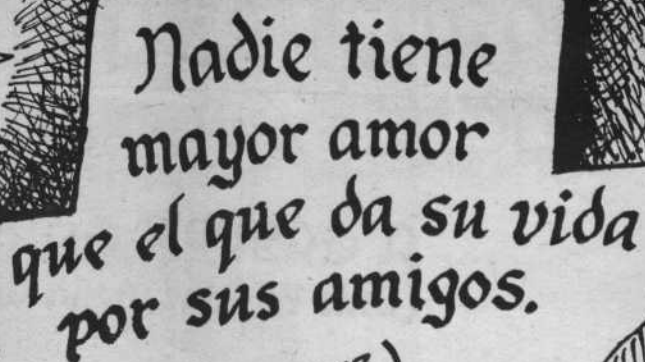 Nadie tiene
mayor amor
que el que da su vida
por sus amigos.